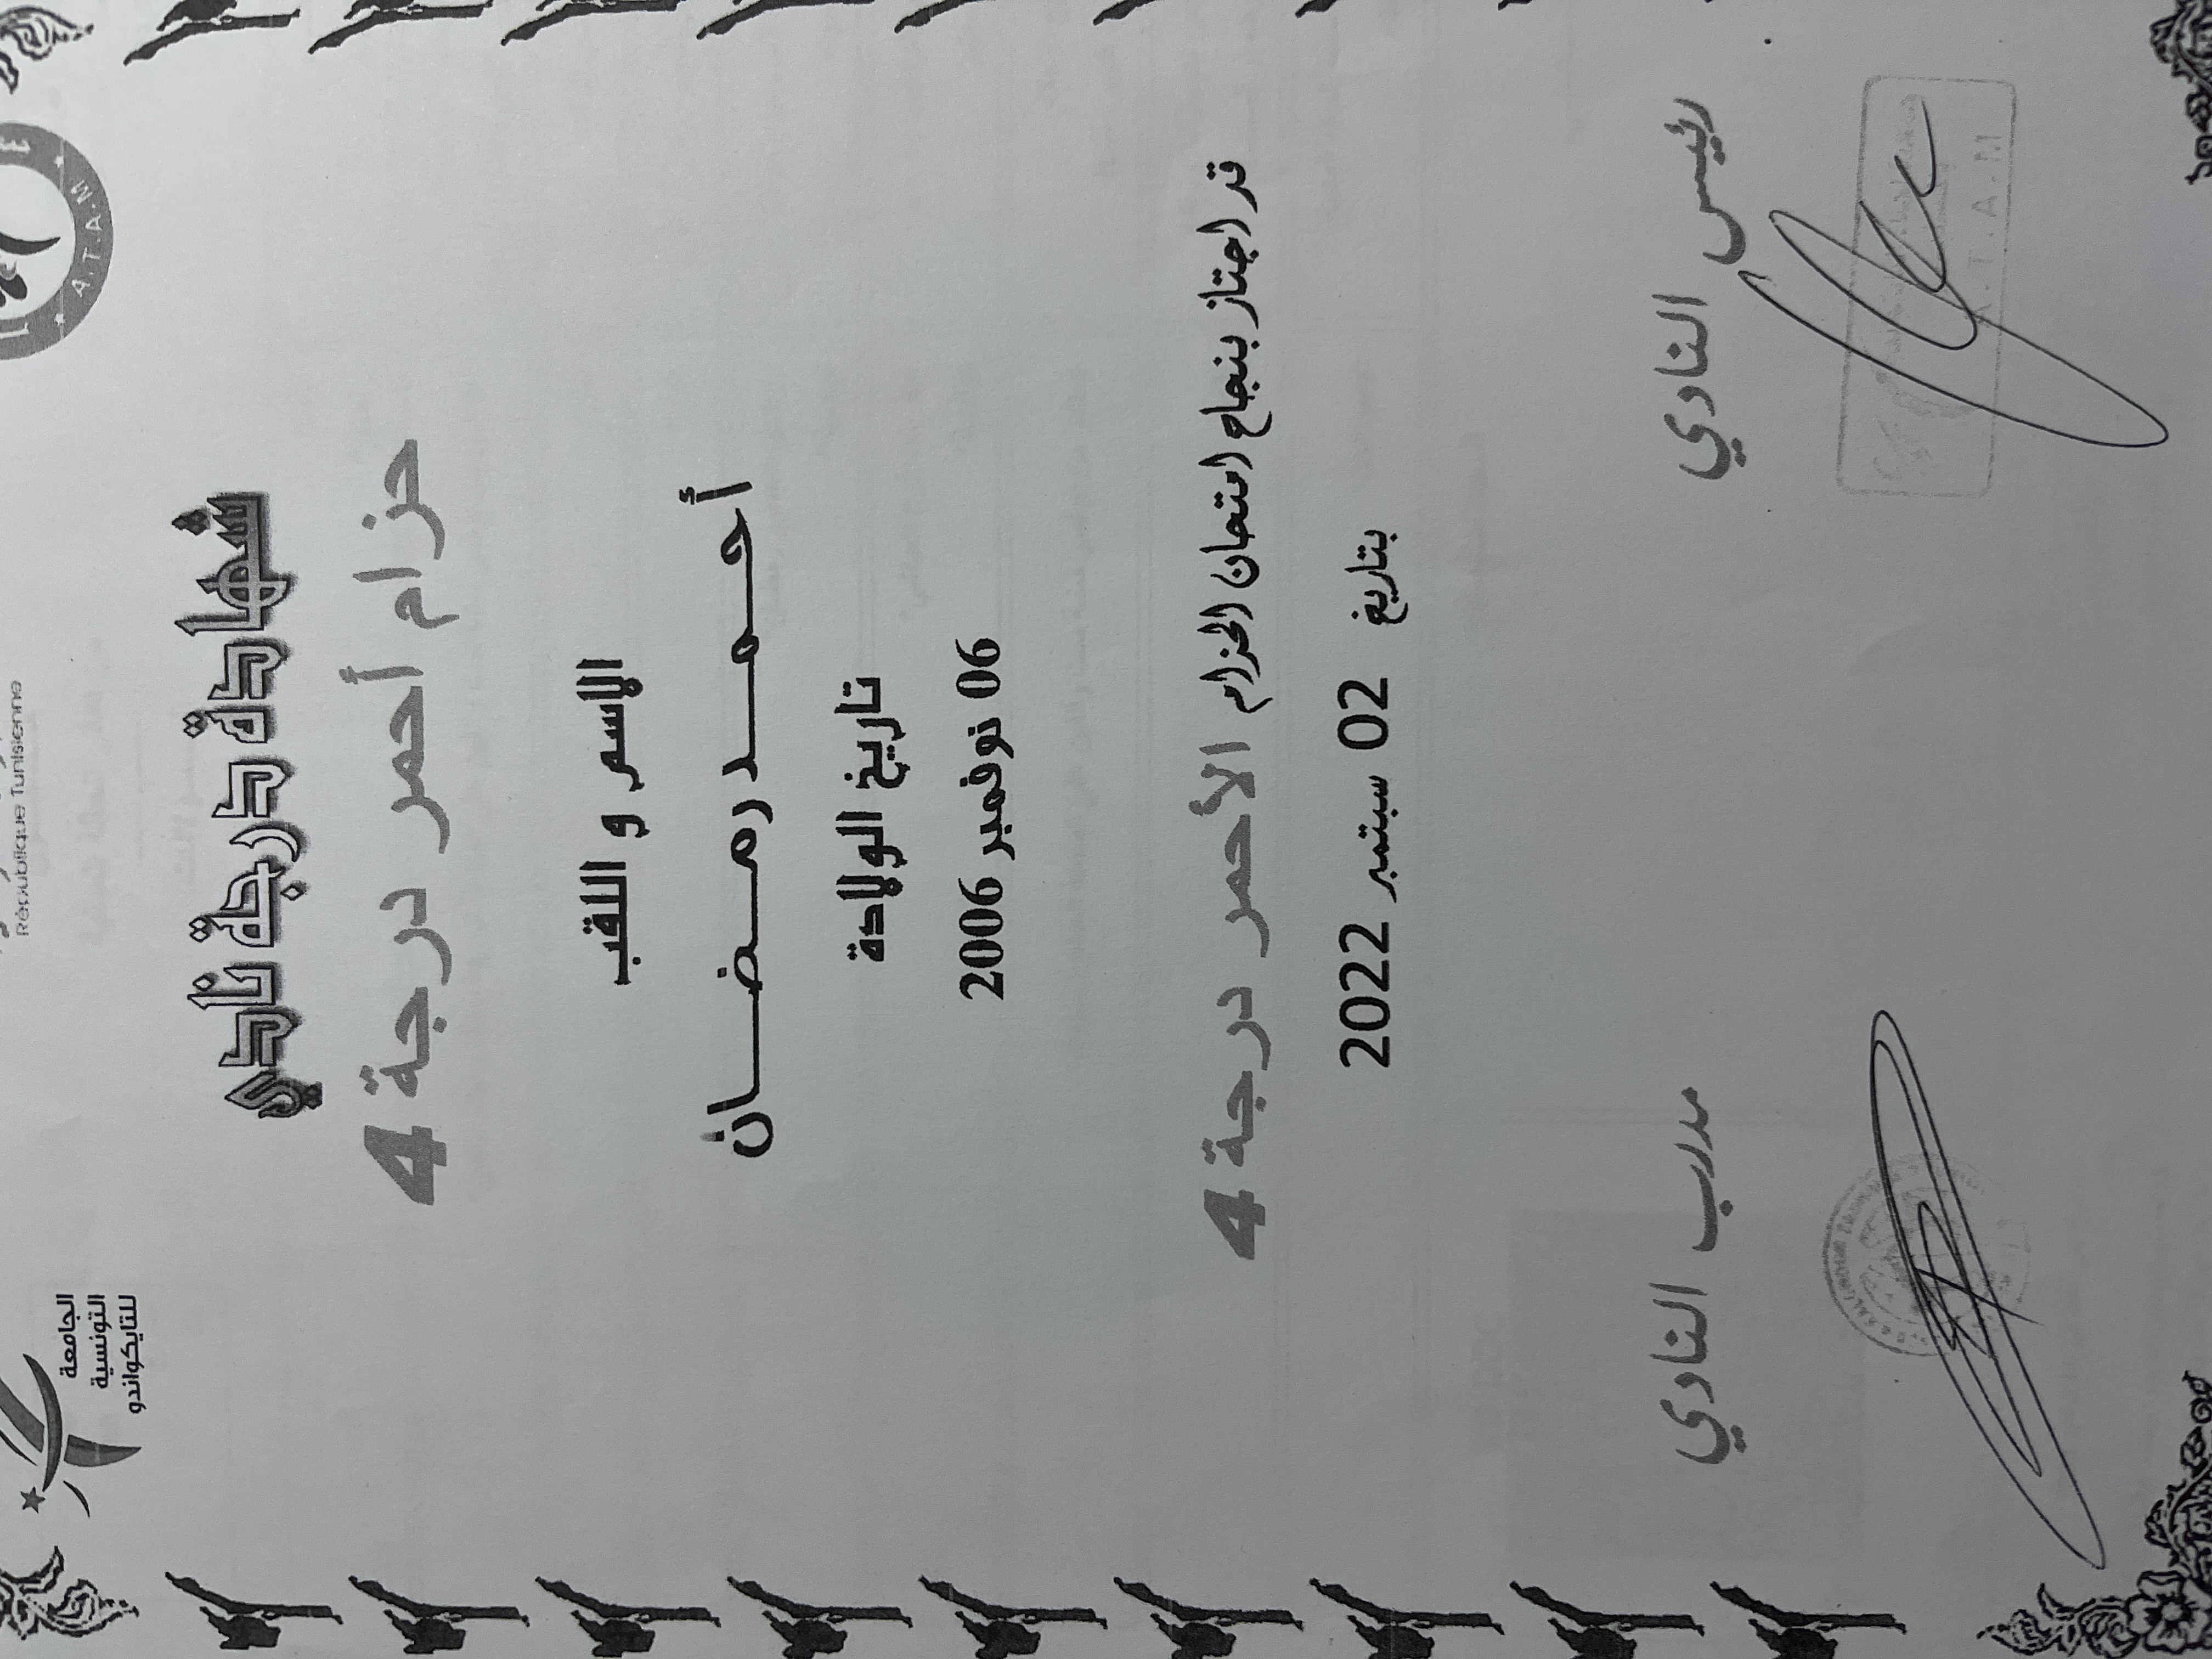 République Tunisienne
الجامعة
التونسية
للتايكواندو
A.T.A.M
شهادة درجة نادي
حزام أحمر درجة 4
الاسم و اللقب
أحمد رمضان
تاريخ الولادة
06 نوفمبر 2006
قد اجتاز بنجاح امتحان الحزام الأحمر درجة 4
بتاريخ 02 سبتمبر 2022
رئيس النادي
مدرب النادي
A.T.A.M